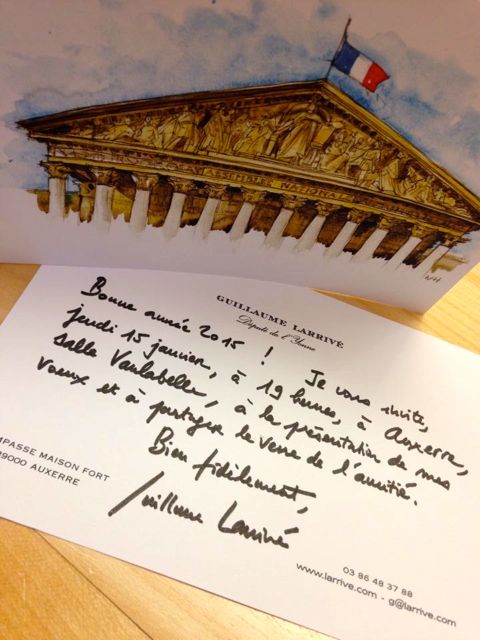 ASSEMBLEE NATIONALE
GUILLAUME LARRIVÉ
Député de l'Yonne
Bonne année 2015 ! Je vous invite,
jeudi 15 janvier, à 19 heures, à Auxerre,
salle Vaulabelle, à la présentation de mes
voeux et à partager le verre de l'amitié.
Bien fidèlement,
Guillaume Larrivé
MPASSE MAISON FORT
89000 AUXERRE
03 86 48 37 88
www.larrive.com - g@larrive.com